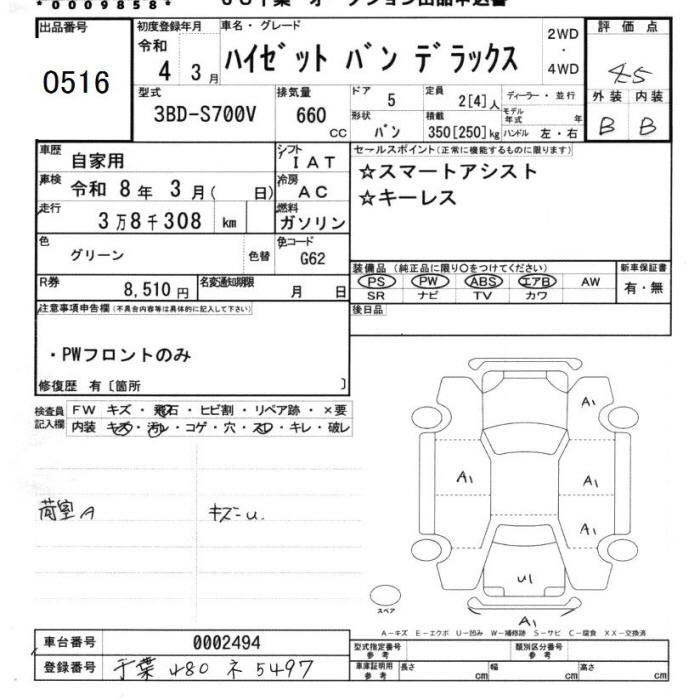 *0009858*
出品番号
0516
初度登録年月
令和
4 3月
車名・グレード
ハイゼット バン デラックス
2WD
・
4WD
評価点
4.5
外装 内装
B B
型式
3BD-S700V
排気量
660
CC
ドア
5
定員
2[4]人
形状
バン
積載
350[250]kg
ディーラー・並行
モデル年式 年
ハンドル 左・右
車歴
自家用
シフト
IAT
車検
令和 8年 3月( 日)
冷房
AC
走行
3万8千308 km
燃料
ガソリン
色
グリーン
色替
色コード
G62
R券
8,510円
名変通知期限
月 日
セールスポイント(正常に機能するものに限ります)
☆スマートアシスト
☆キーレス
装備品(純正品に限り○をつけてください)
PS PW ABS エアB AW
SR ナビ TV カワ
新車保証書
有・無
後日品
注意事項申告欄(不具合内容等は具体的に記入して下さい)
・PWフロントのみ
修復歴 有〔箇所 〕
検査員記入欄
FW キズ・飛石・ヒビ割・リペア跡・×要
内装 キズ・汚レ・コゲ・穴・スレ・キレ・破レ
荷室A
キズ-U
A1
A1
A1
A1
U1
A1
スペア
A−キズ E−エクボ U−凹み W−補修跡 S−サビ C−腐食 XX−交換済
車台番号
0002494
登録番号
千葉 480 ネ 5497
型式指定番号
参考
類別区分番号
参考
車庫証明用
参考
長さ cm
幅 cm
高さ cm